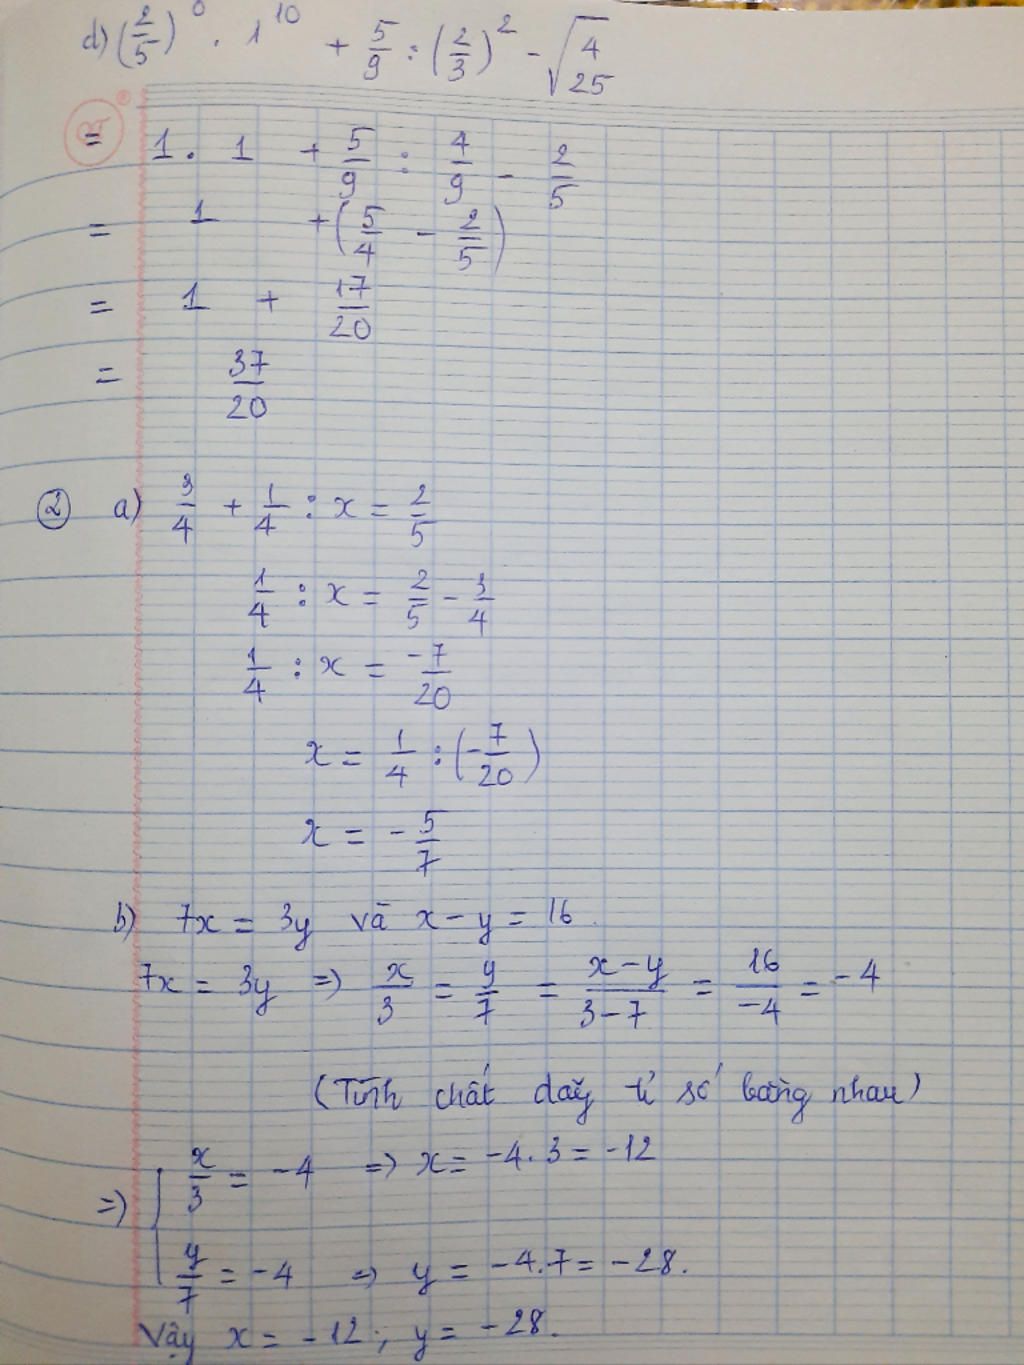 d) (2/5)^0 . 1^10 + 5/9 : (2/3)^2 - √(4/25)
= 1 . 1 + 5/9 : 4/9 - 2/5
= 1 + (5/4 - 2/5)
= 1 + 17/20
= 37/20
② a) 3/4 + 1/4 : x = 2/5
1/4 : x = 2/5 - 3/4
1/4 : x = -7/20
x = 1/4 : (-7/20)
x = -5/7
b) 7x = 3y và x - y = 16.
7x = 3y => x/3 = y/7 = (x-y)/(3-7) = 16/-4 = -4
(Tính chất dãy tỉ số bằng nhau)
=> x/3 = -4 => x = -4.3 = -12
y/7 = -4 => y = -4.7 = -28.
Vậy x = -12; y = -28.